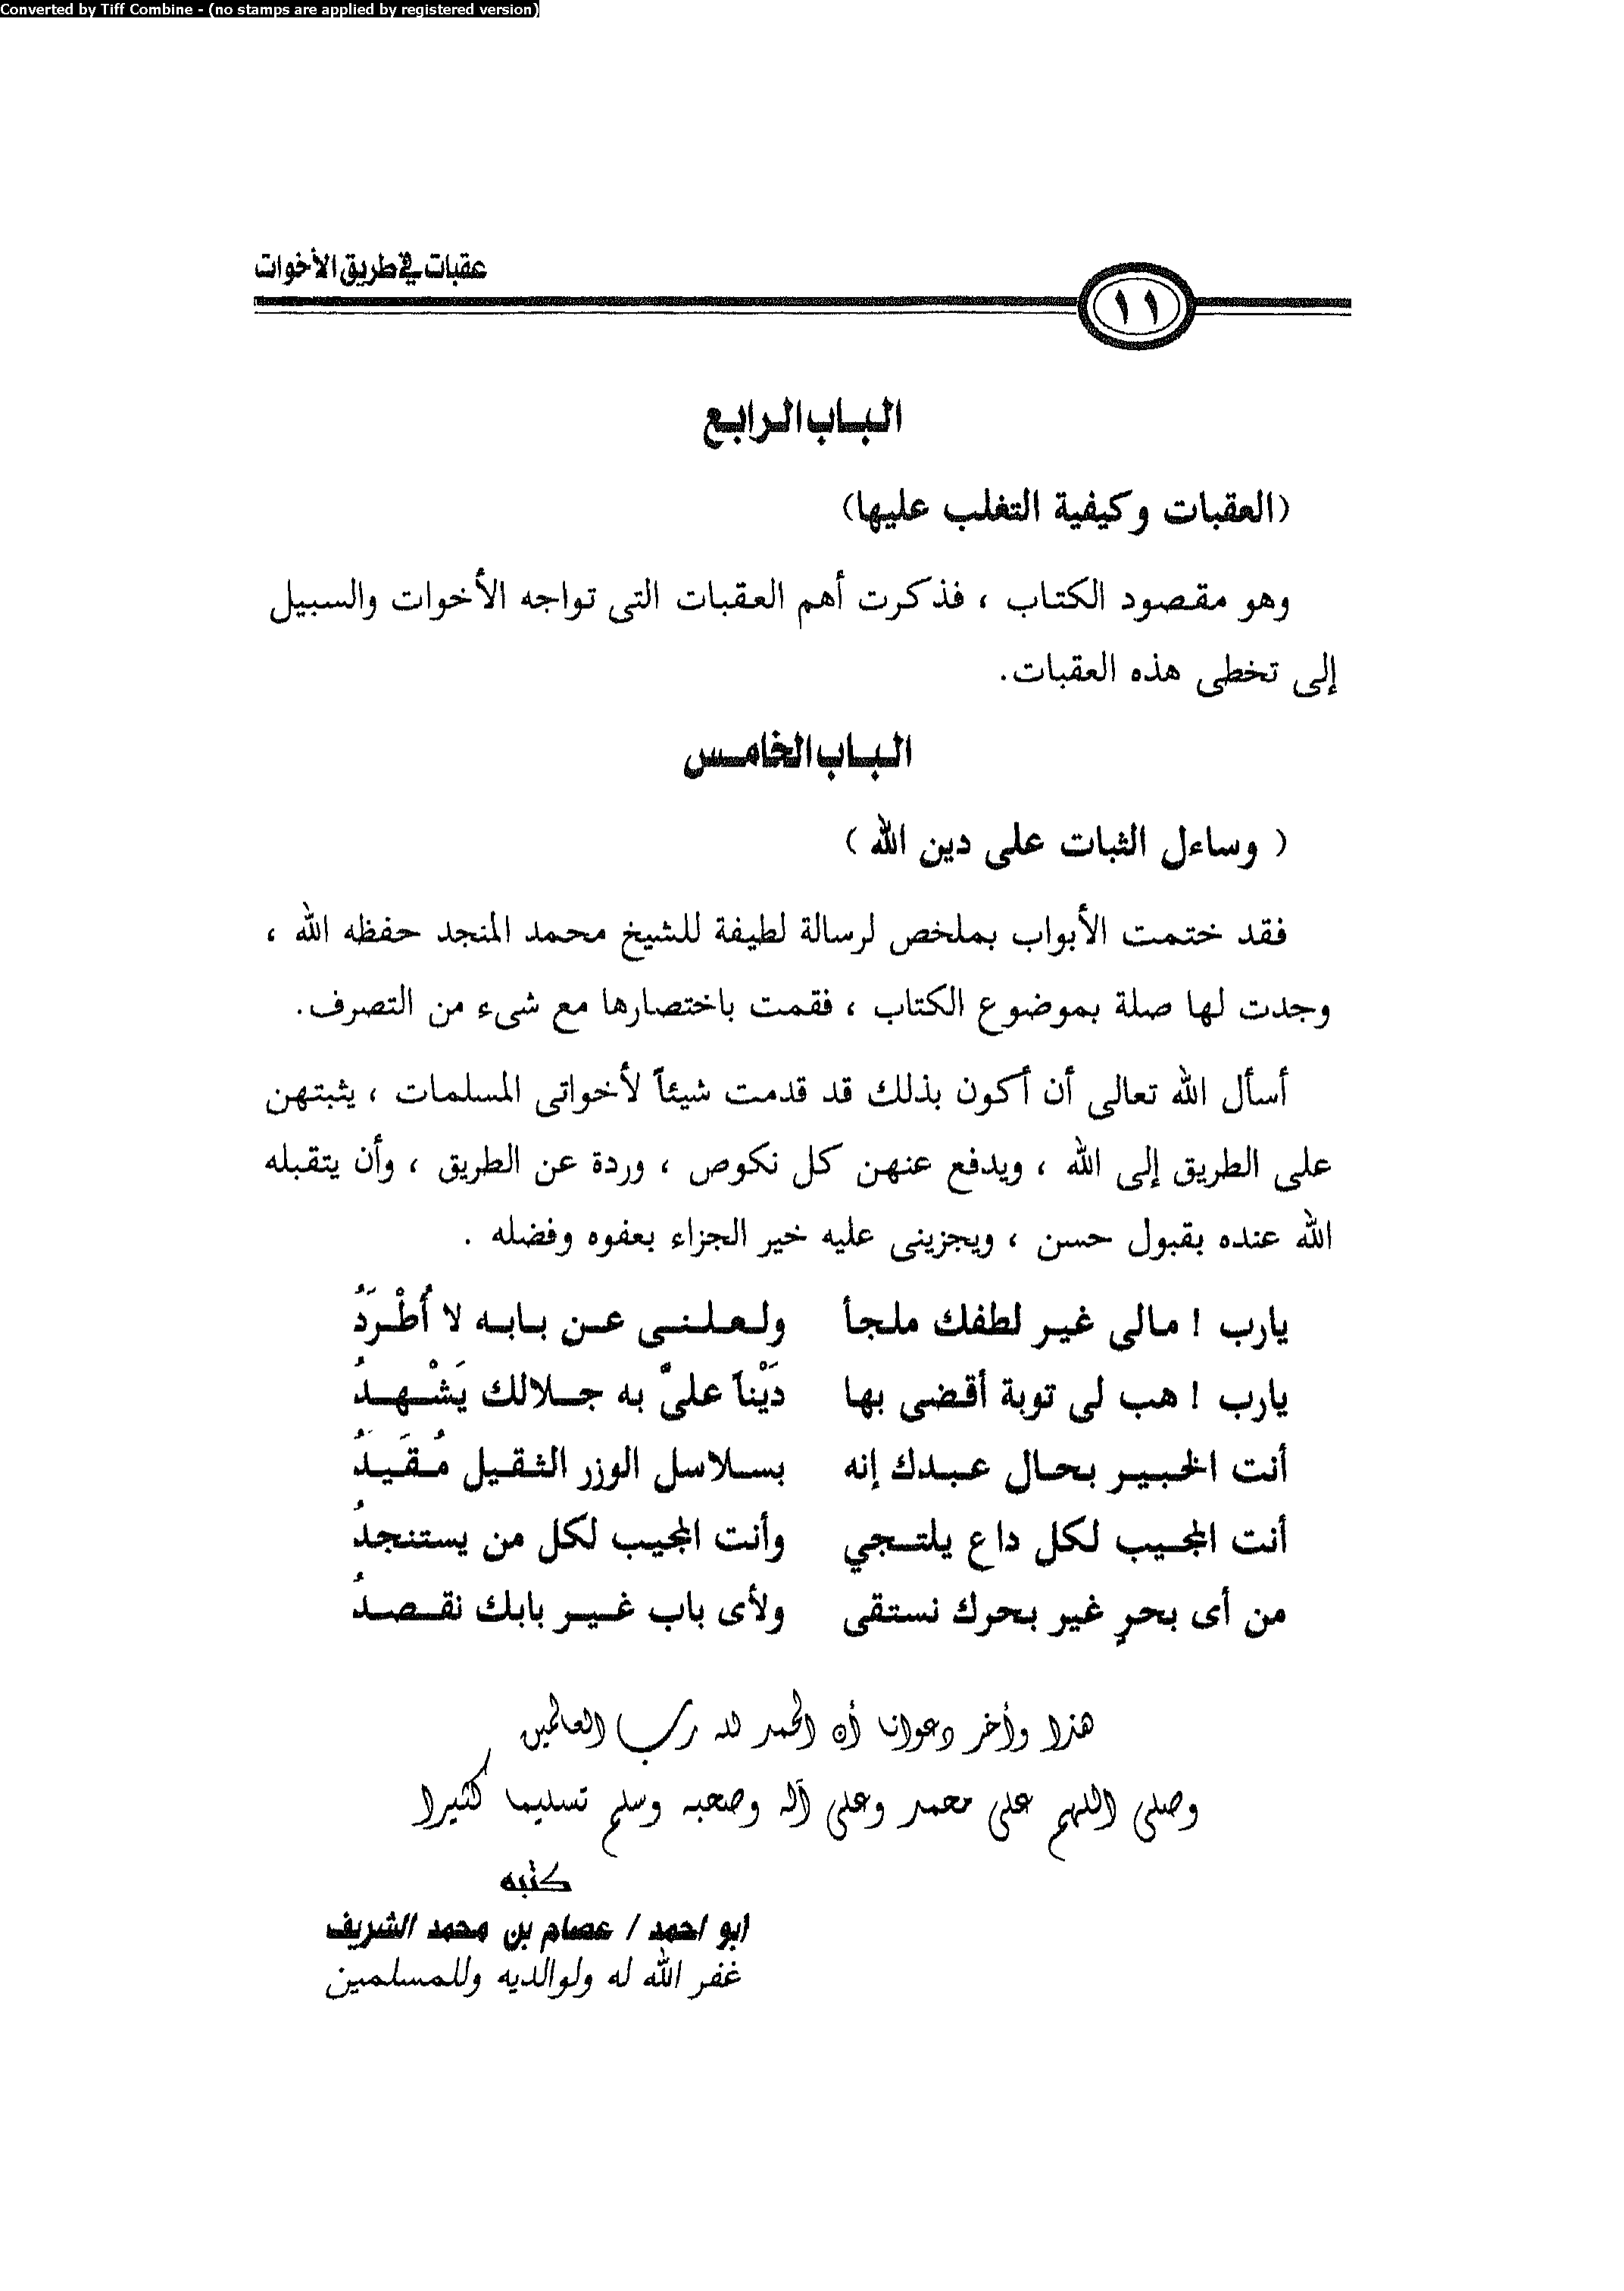 Converted by Tiff Combine - (no stamps are applied by registered version)
عقبات في طريق الأخوات
١١
الباب الرابع
(العقبات وكيفية التغلب عليها)
وهو مقصود الكتاب ، فذكرت أهم العقبات التى تواجه الأخوات والسبيل
إلى تخطى هذه العقبات.
الباب الخامس
( وساءل الثبات على دين الله )
فقد ختمت الأبواب بملخص لرسالة لطيفة للشيخ محمد المنجد حفظه الله ،
وجدت لها صلة بموضوع الكتاب ، فقمت باختصارها مع شىء من التصرف.
أسأل الله تعالى أن أكون بذلك قد قدمت شيئاً لأخواتى المسلمات ، يثبتهن
على الطريق إلى الله ، ويدفع عنهن كل نكوص ، وردة عن الطريق ، وأن يتقبله
الله عنده بقبول حسن ، ويجزينى عليه خير الجزاء بعفوه وفضله .
يارب ! مالى غير لطفك ملجأ ولعلنى عن بابه لا أُطْرَدُ
يارب ! هب لى توبة أقضى بها دَيْناً علىَّ به جلالك يَشْهدُ
أنت الخبير بحال عبدك إنه بسلاسل الوزر الثقيل مُقَيدُ
أنت المجيب لكل داع يلتجي وأنت المجيب لكل من يستنجدُ
من أى بحرٍ غير بحرك نستقى ولأى باب غير بابك نقصدُ
هذا وأخر دعوانا أن الحمد لله رب العالمين
وصلى اللهم على محمد وعلى آله وصحبه وسلم تسليما كثيرا
كتبه
ابو احمد / عصام بن محمد الشريف
غفر الله له ولوالديه وللمسلمين